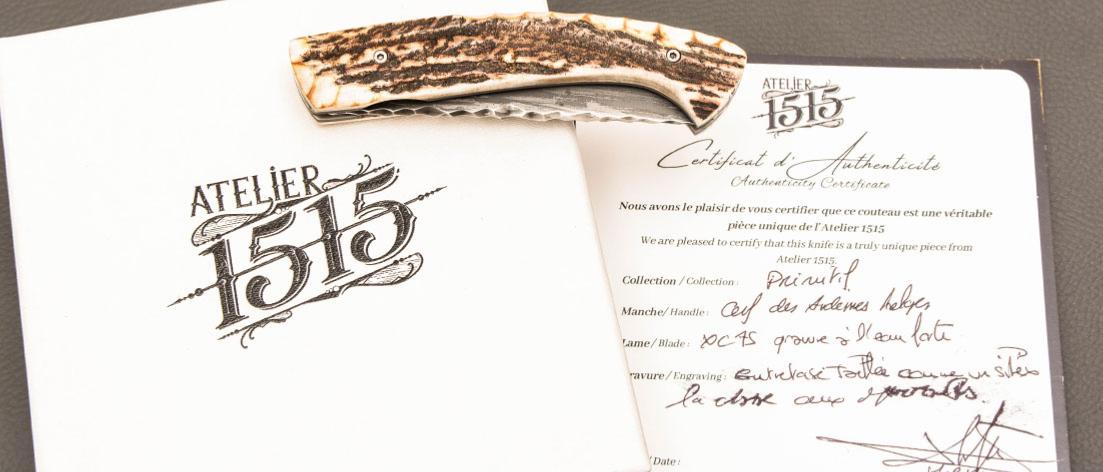 ATELIER
1515
ATELIER
1515
Certificat d'Authenticité
Authenticity Certificate
Nous avons le plaisir de vous certifier que ce couteau est une véritable
pièce unique de l'Atelier 1515
We are pleased to certify that this knife is a truly unique piece from
Atelier 1515.
Collection / Collection : Primitif
Manche/ Handle : Cerf des Ardennes belges
Lame / Blade : XC75 gravure à l'eau forte
ravure / Engraving : Entretoise Taillée comme un silex
la aux
/ Date :